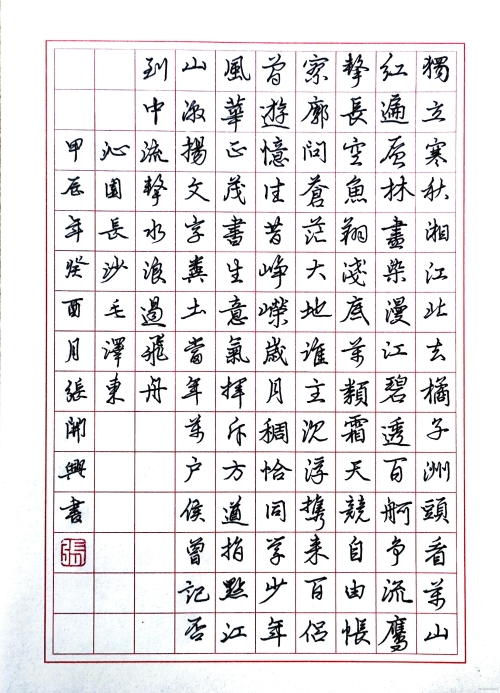 獨立寒秋湘江北去橘子洲頭看萬山
紅遍层林盡染漫江碧透百舸争流鷹
擊長空魚翔淺底萬類霜天競自由悵
寥廓問蒼茫大地誰主沉浮携來百侣
曾遊憶往昔崢嶸歲月稠恰同学少年
風華正茂書生意氣揮斥方遒指點江
山激揚文字糞土當年萬户侯曾記否
到中流擊水浪遏飛舟
沁園長沙毛澤東
甲辰年癸酉月張開興書
張